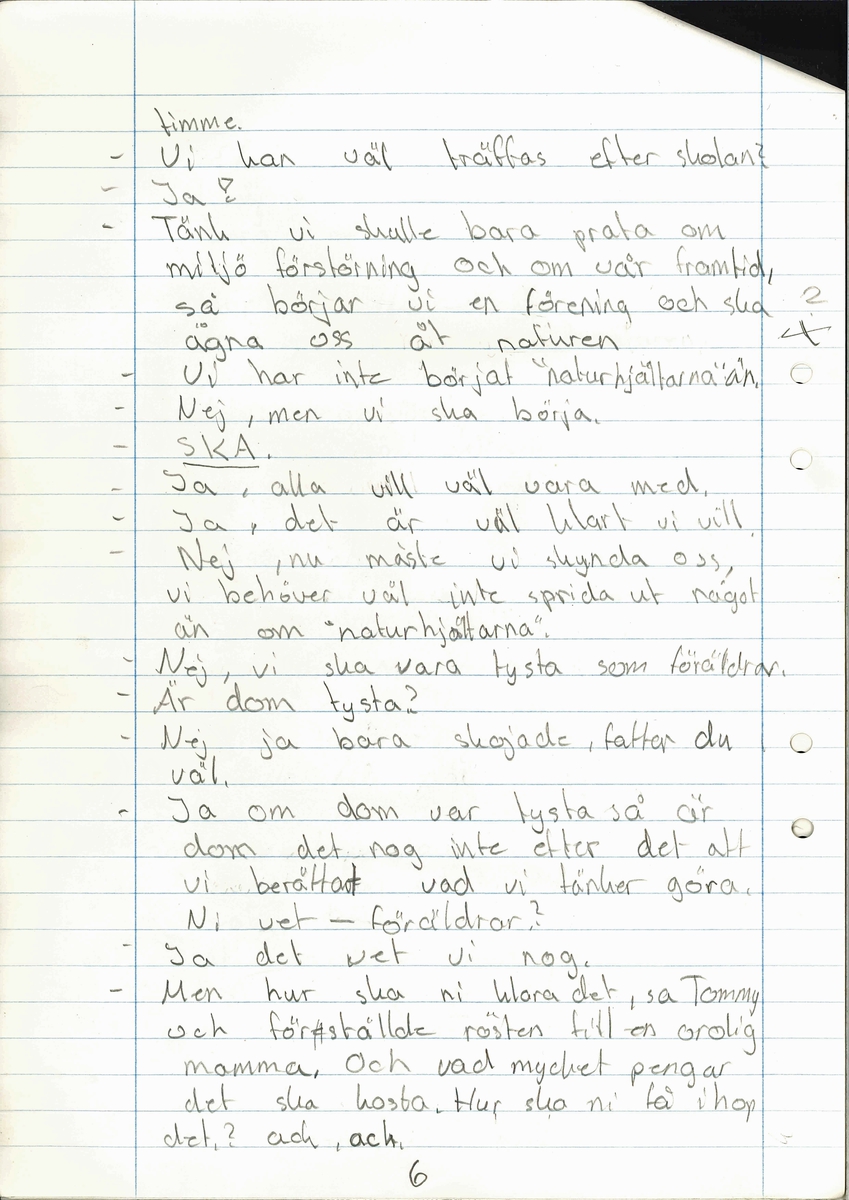 timme.
- Vi kan väl träffas efter skolan?
- Ja?
- Tänk vi skulle bara prata om
miljö förstörning och om vår framtid,
så börjar vi en förening och ska ?
ägna oss åt naturen
- Vi har inte börjat "naturhjältarna" än.
- Nej, men vi ska börja.
- SKA.
- Ja, alla vill väl vara med.
- Ja, det är väl klart vi vill.
- Nej, nu måste vi skynda oss,
vi behöver väl inte sprida ut något
än om "naturhjältarna".
- Nej, vi ska vara tysta som föräldrar.
- Är dom tysta?
- Nej ja bara skojade, fatter du
väl.
- Ja om dom var tysta så är
dom det nog inte efter det att
vi berättat vad vi tänker göra.
Ni vet - föräldrar?
- Ja det vet vi nog.
- Men hur ska ni klara det, sa Tommy
och förställde rösten till en orolig
mamma. Och vad mycket pengar
det ska kosta. Hur ska ni få ihop
det.? ack, ack.
6